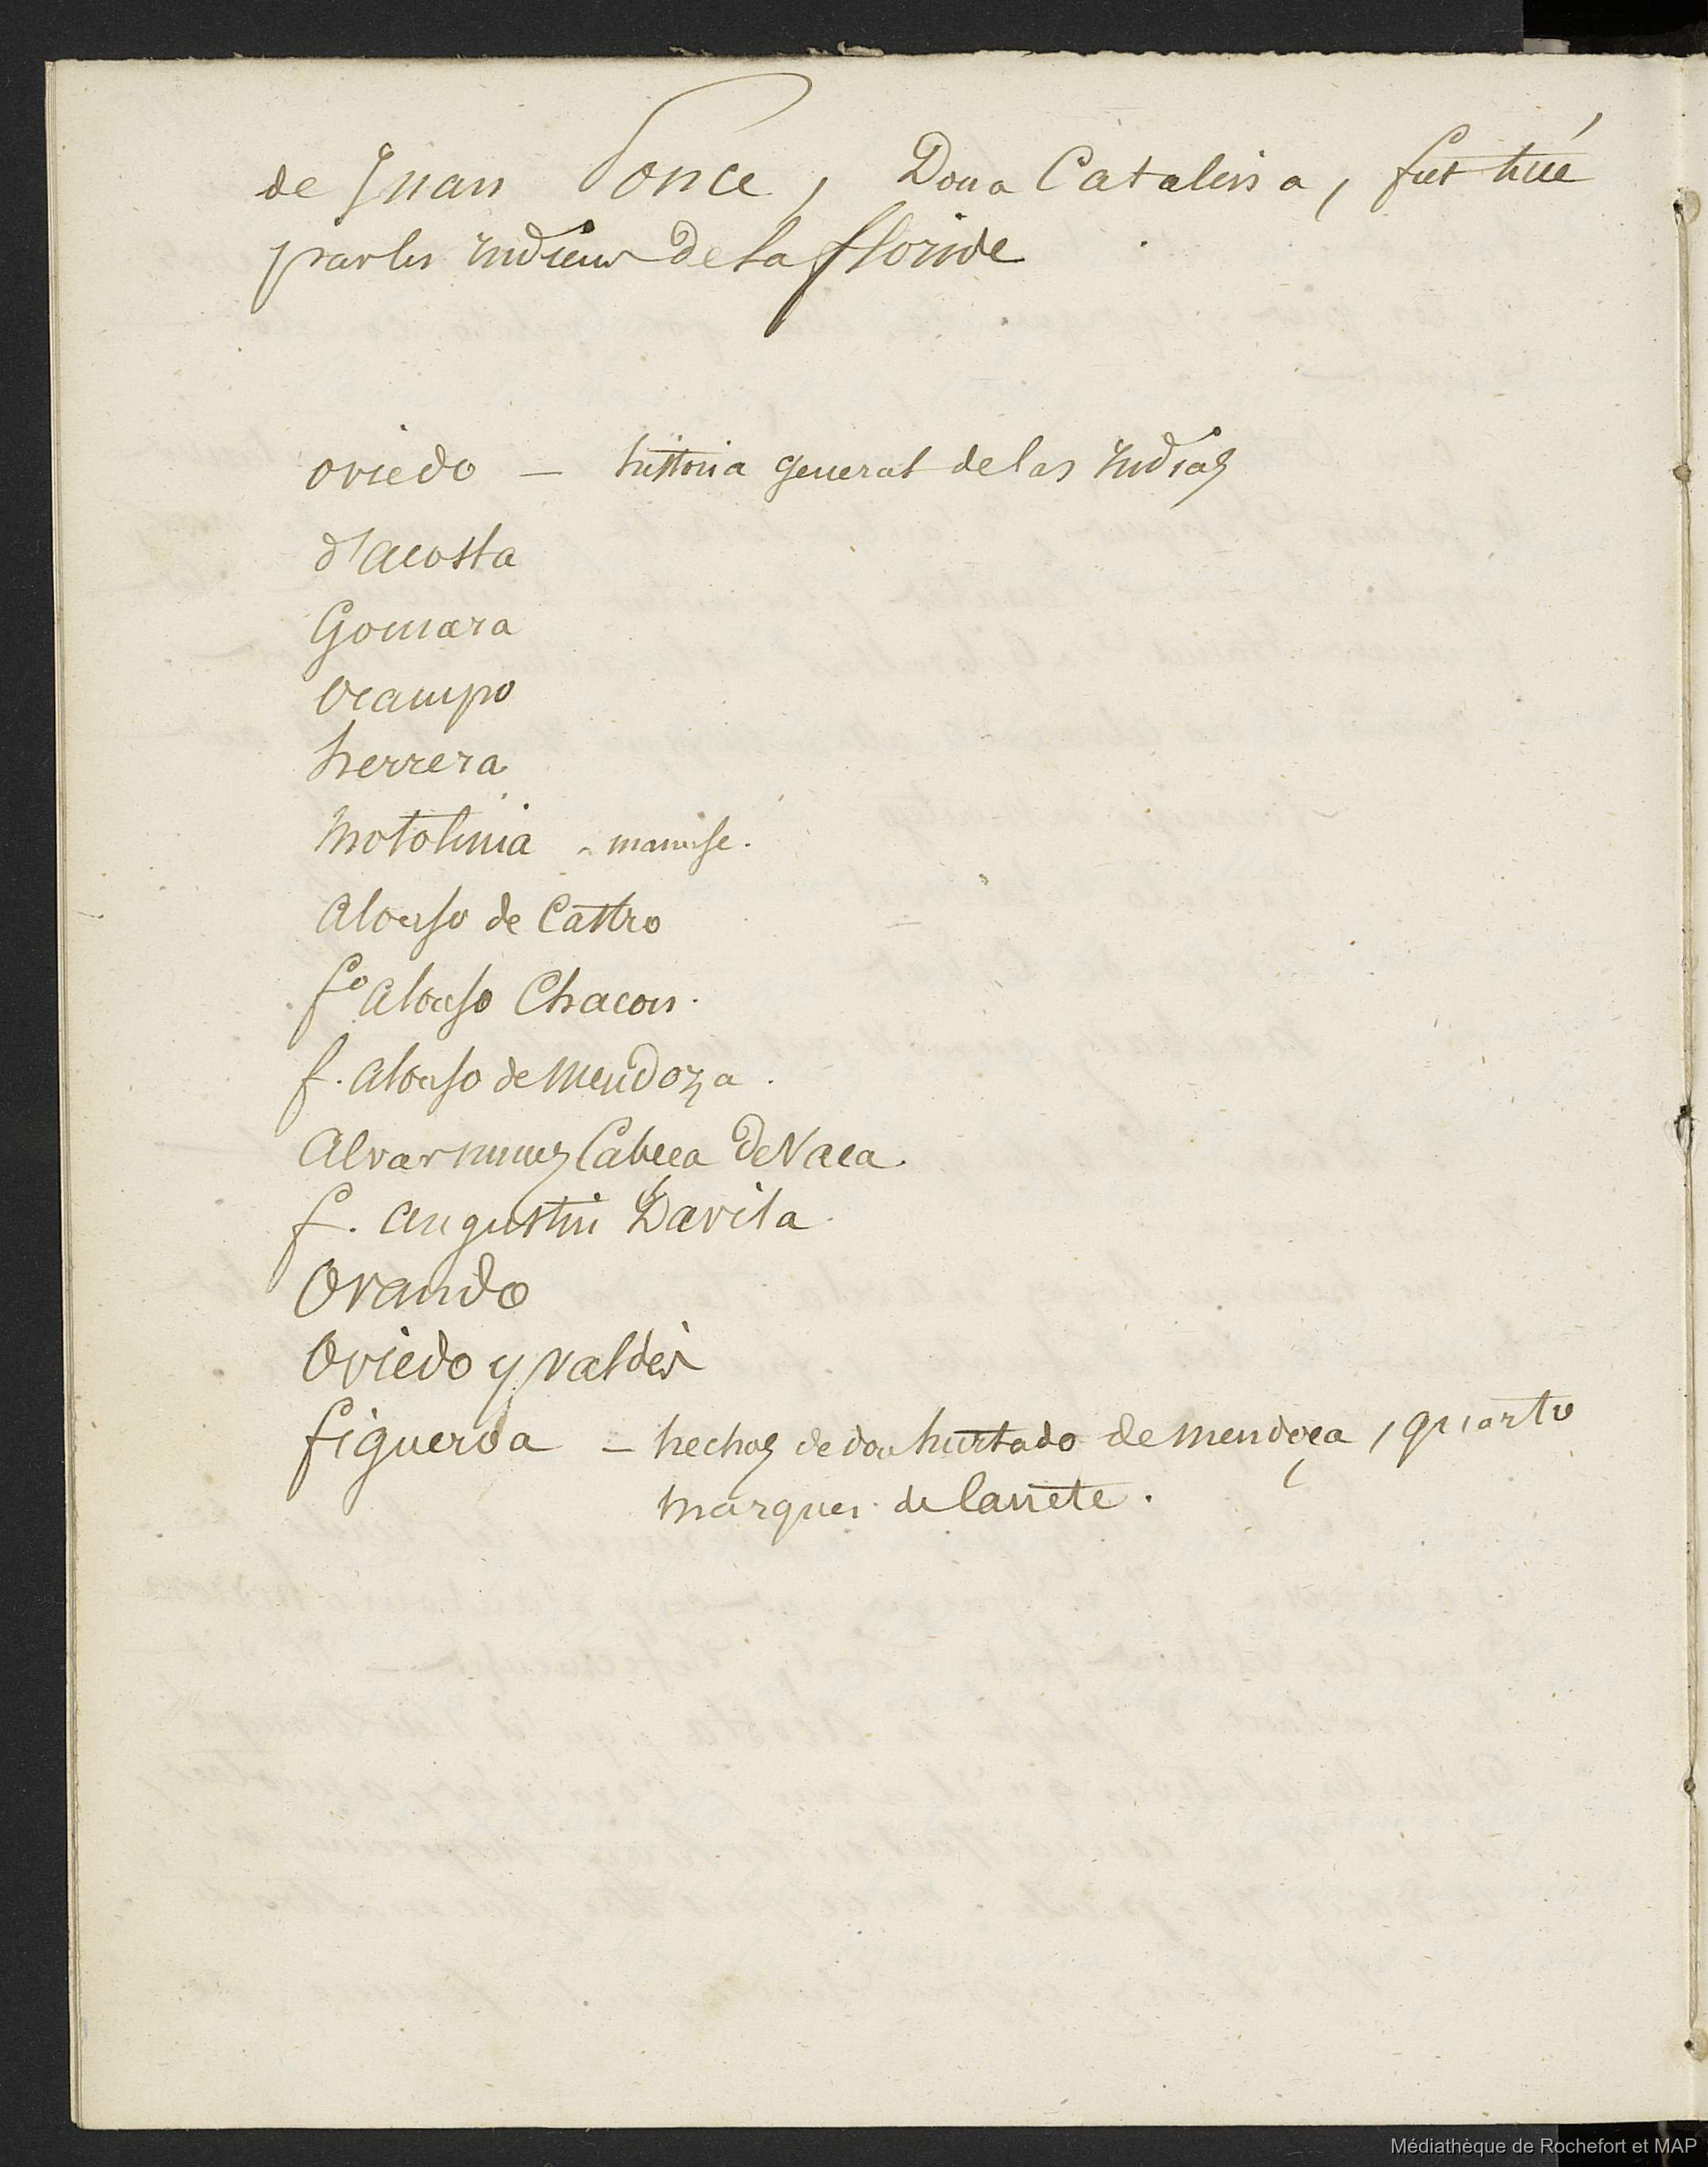 de Juan Ponce, Dona Catalina, fut tué
par les indiens de la floride
oviedo — historia general de las indias
d'acosta
Gomara
Ocampo
herrera
Motolinia - manusc.
Alonso de Castro
fº Alonso Chacon.
f. Alonso de Mendoza.
Alvar nunez Cabeca de Vaca.
f. Augustin Davila.
Ovando
Oviedo y valdès
figueroa — hechos de don hurtado de mendoça, quarto
marques de Canete.
Médiathèque de Rochefort et MAP